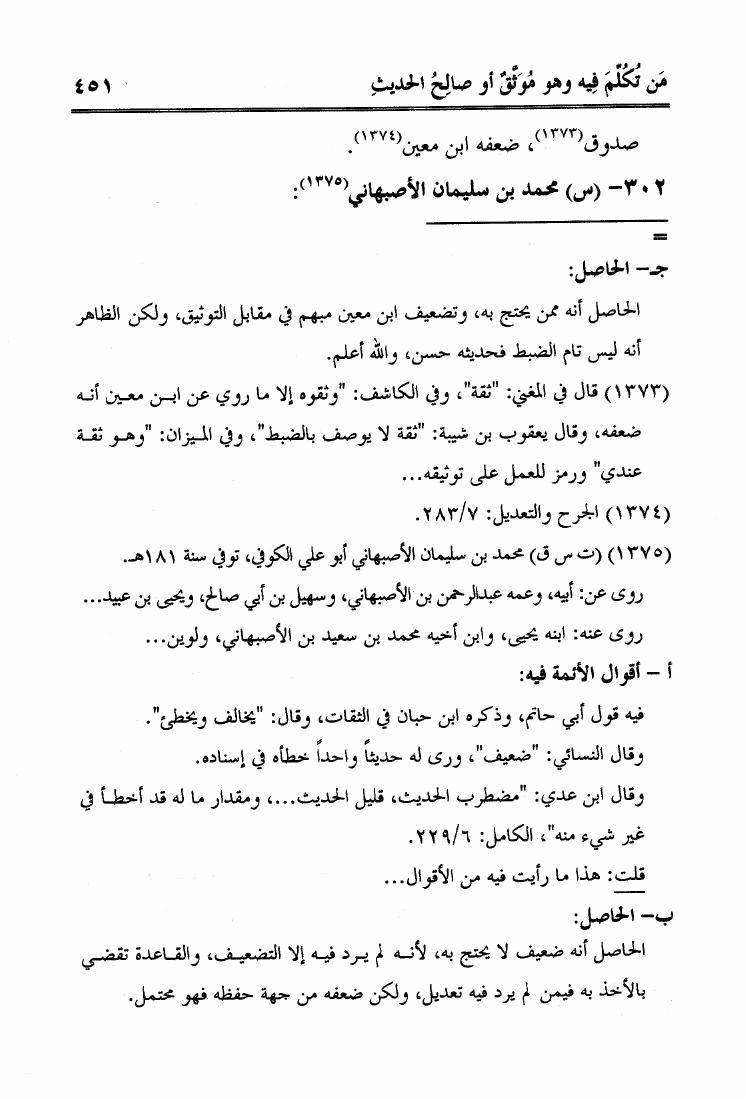 مَن تُكُلِّمَ فِيه وهو مُوَثَّقٌ أو صالِحُ الحديثِ ٤٥١
صدوق(١٣٧٣)، ضعفه ابن معين(١٣٧٤).
٣٠٢- (س) محمد بن سليمان الأصبهاني(١٣٧٥):
=
جـ- الحاصل:
الحاصل أنه ممن يحتج به، وتضعيف ابن معين مبهم في مقابل التوثيق، ولكن الظاهر
أنه ليس تام الضبط فحديثه حسن، والله أعلم.
(١٣٧٣) قال في المغني: "ثقة"، وفي الكاشف: "وثقوه إلا ما روي عن ابن معين أنه
ضعفه، وقال يعقوب بن شيبة: "ثقة لا يوصف بالضبط"، وفي الميزان: "وهو ثقة
عندي" ورمز للعمل على توثيقه...
(١٣٧٤) الجرح والتعديل: ٢٨٣/٧.
(١٣٧٥) (ت س ق) محمد بن سليمان الأصبهاني أبو علي الكوفي، توفي سنة ١٨١هـ.
روى عن: أبيه، وعمه عبدالرحمن بن الأصبهاني، وسهيل بن أبي صالح، ويحيى بن عبيد...
روى عنه: ابنه يحيى، وابن أخيه محمد بن سعيد بن الأصبهاني، ولوين...
أ - أقوال الأئمة فيه:
فيه قول أبي حاتم، وذكره ابن حبان في الثقات، وقال: "يخالف ويخطئ".
وقال النسائي: "ضعيف"، ورى له حديثاً واحداً خطأه في إسناده.
وقال ابن عدي: "مضطرب الحديث، قليل الحديث...، ومقدار ما له قد أخطأ في
غير شيء منه"، الكامل: ٢٢٩/٦.
قلت: هذا ما رأيت فيه من الأقوال...
ب- الحاصل:
الحاصل أنه ضعيف لا يحتج به، لأنه لم يرد فيه إلا التضعيف، والقاعدة تقضي
بالأخذ به فيمن لم يرد فيه تعديل، ولكن ضعفه من جهة حفظه فهو محتمل.